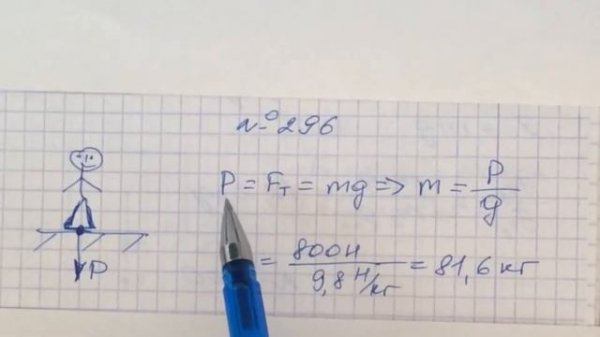 №296
P = Fт = mg => m = P/g
= 800Н / 9,8 Н/кг = 81,6 кг
P